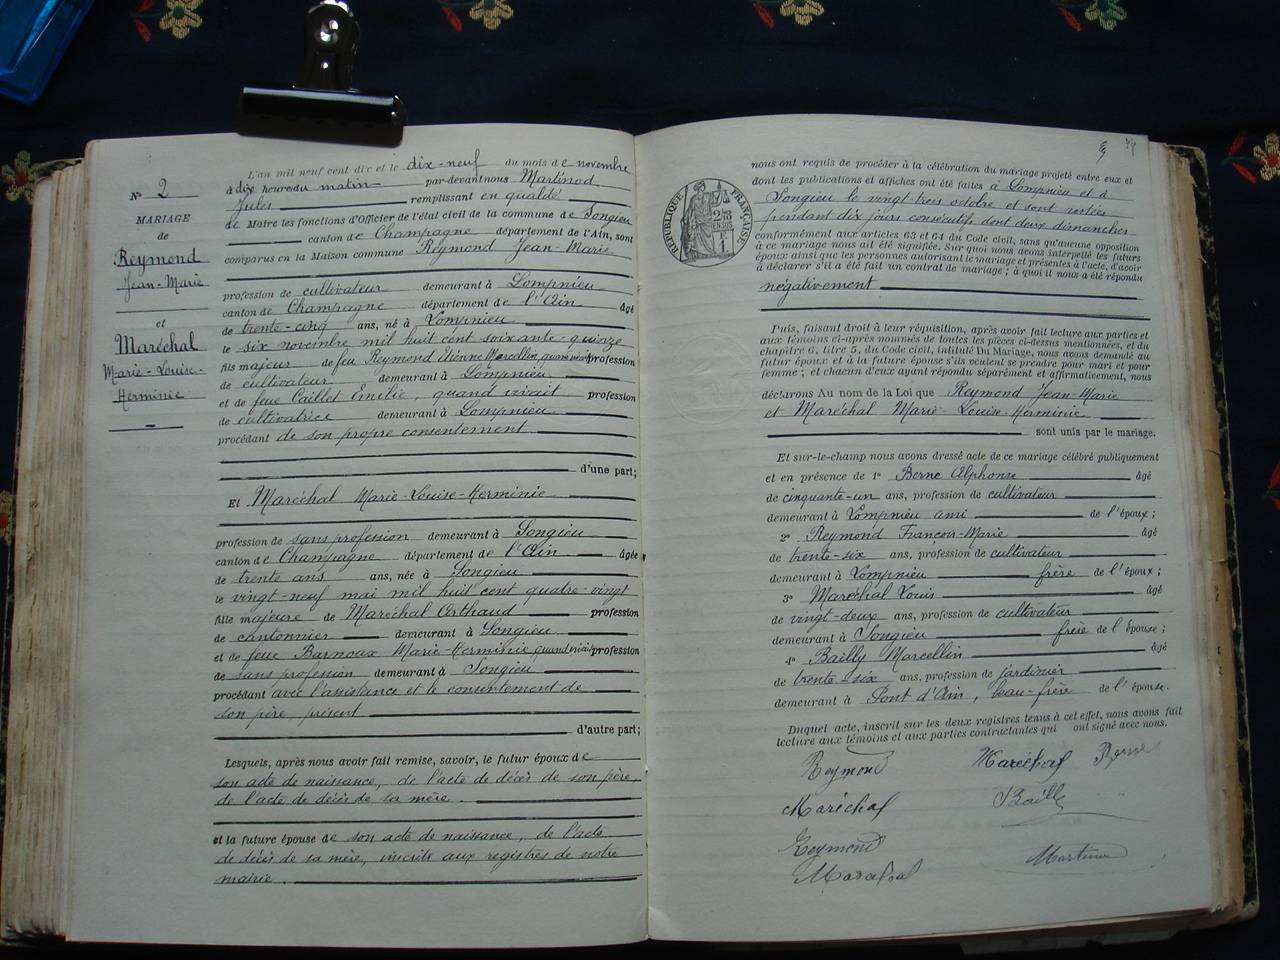 N° 2
MARIAGE
de
Reymond
Jean-Marie
et
Maréchal
Marie-Louise-
Herminie
L'an mil neuf cent dix et le dix-neuf du mois de novembre
à dix heures du matin par-devant nous Martinod
Jules remplissant en qualité
de Maire les fonctions d'Officier de l'état civil de la commune de Songieu
canton de Champagne département de l'Ain, sont
comparus en la Maison commune Reymond Jean-Marie
profession de cultivateur demeurant à Lompnieu
canton de Champagne département de l'Ain âgé
de trente-cinq ans, né à Lompnieu
le six novembre mil huit cent soixante-quinze
fils majeur de feu Reymond Etienne Marcellin, quand vivait profession
de cultivateur demeurant à Lompnieu
et de feue Caillet Emelie, quand vivait profession
de cultivatrice demeurant à Lompnieu
procédant de son propre consentement
d'une part;
Et Maréchal Marie-Louise-Herminie
profession de sans profession demeurant à Songieu
canton de Champagne département de l'Ain âgée
de trente ans ans, née à Songieu
le vingt-neuf mai mil huit cent quatre-vingt
fille majeure de Maréchal Orthaud profession
de cantonnier demeurant à Songieu
et de feue Barnoux Marie-Herminie, quand vivait profession
de sans profession demeurant à Songieu
procédant avec l'assistance et le consentement de
son père présent
d'autre part;
Lesquels, après nous avoir fait remise, savoir, le futur époux de
son acte de naissance, de l'acte de décès de son père,
de l'acte de décès de sa mère.
et la future épouse de son acte de naissance, de l'acte
de décès de sa mère, inscrits aux registres de notre
mairie.
RÉPUBLIQUE FRANÇAISE
nous ont requis de procéder à la célébration du mariage projeté entre eux et
dont les publications et affiches ont été faites à Lompnieu et à
Songieu le vingt-trois octobre et sont restées
pendant dix jours consécutifs dont deux dimanches
conformément aux articles 63 et 64 du Code civil, sans qu'aucune opposition
à ce mariage nous ait été signifiée. Sur quoi nous avons interpellé les futurs
époux ainsi que les personnes autorisant le mariage et présentes à l'acte, d'avoir
à déclarer s'il a été fait un contrat de mariage; à quoi il nous a été répondu
négativement
Puis, faisant droit à leur réquisition, après avoir fait lecture aux parties et
aux témoins ci-après nommés de toutes les pièces ci-dessus mentionnées, et du
chapitre 6, titre 5, du Code civil, intitulé Du Mariage, nous avons demandé au
futur époux et à la future épouse s'ils veulent se prendre pour mari et pour
femme; et chacun d'eux ayant répondu séparément et affirmativement, nous
déclarons Au nom de la Loi que Reymond Jean-Marie
et Maréchal Marie-Louise-Herminie
sont unis par le mariage.
Et sur-le-champ nous avons dressé acte de ce mariage célébré publiquement
et en présence de 1° Berne Alphonse âgé
de cinquante-un ans, profession de cultivateur
demeurant à Lompnieu ami de l'époux;
2° Reymond François-Marie âgé
de trente-six ans, profession de cultivateur
demeurant à Lompnieu frère de l'époux;
3° Maréchal Louis âgé
de vingt-deux ans, profession de cultivateur
demeurant à Songieu frère de l'épouse;
4° Bailly Marcellin âgé
de trente-six ans, profession de jardinier
demeurant à Pont d'Ain, beau-frère de l'épouse.
Duquel acte, inscrit sur les deux registres tenus à cet effet, nous avons fait
lecture aux témoins et aux parties contractantes qui ont signé avec nous.
Reymond Maréchal Berne
Maréchal Bailly
Reymond
Maréchal Martinod